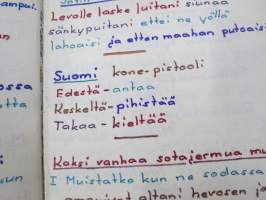 Levolle laske luitani siunaa
sänkypuitani ettei ne yöllä
lahoaisi ja etten maahan putoaisi
Suomi kone-pistooli
Edestä-antaa
Keskeltä-pihistää
Takaa-kieltää
Kaksi vanhaa sotajermua
I Muistatko kun ne sodassa
ampuivat altani hevosen